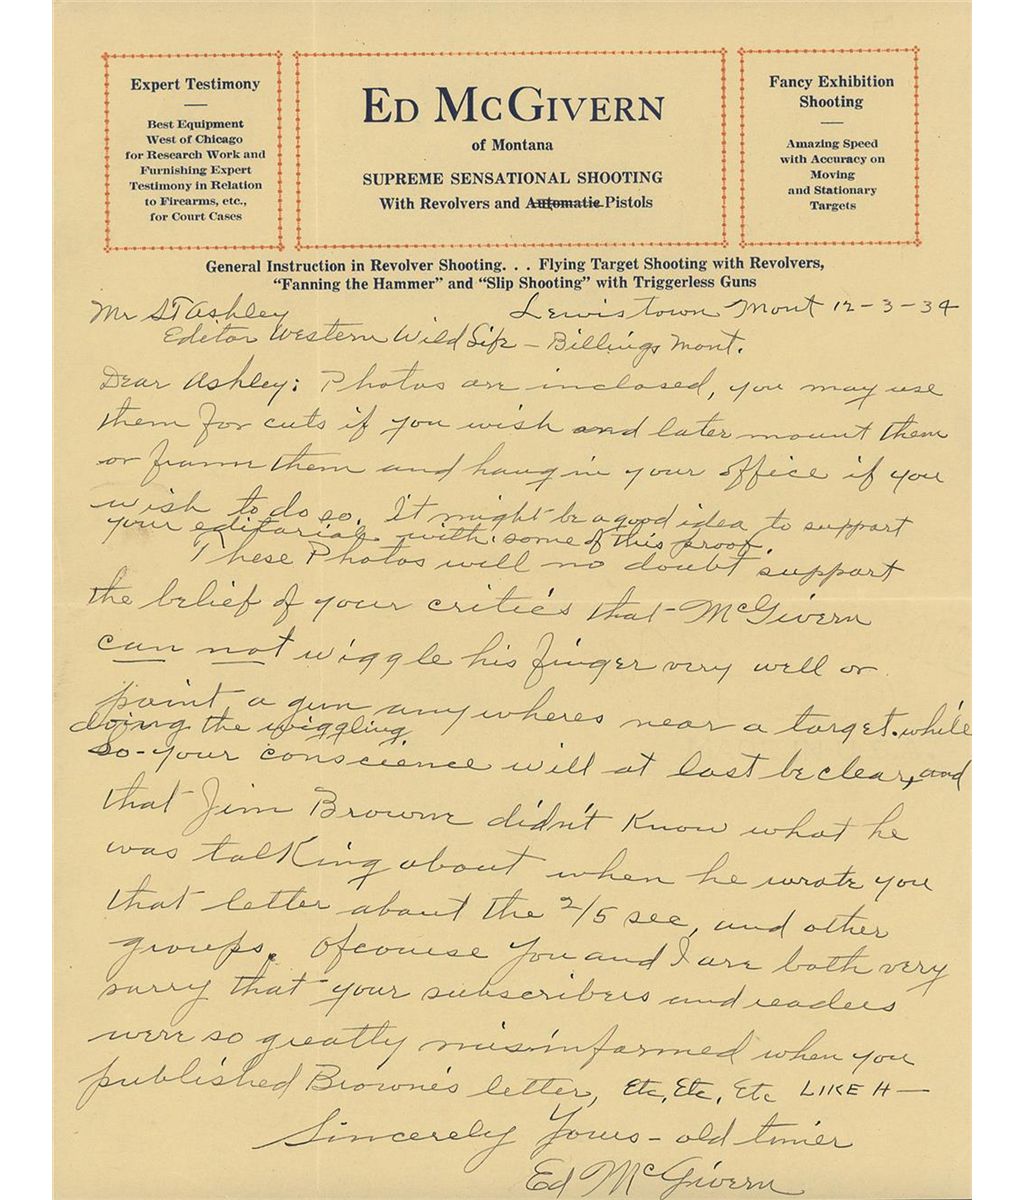 Expert Testimony
Best Equipment
West of Chicago
for Research Work and
Furnishing Expert
Testimony in Relation
to Firearms, etc.,
for Court Cases
ED MCGIVERN
of Montana
SUPREME SENSATIONAL SHOOTING
With Revolvers and Automatic Pistols
Fancy Exhibition
Shooting
Amazing Speed
with Accuracy on
Moving
and Stationary
Targets
General Instruction in Revolver Shooting. . . Flying Target Shooting with Revolvers,
"Fanning the Hammer" and "Slip Shooting" with Triggerless Guns
Lewistown Mont 12-3-34
Mr ST Ashley
Editor Western Wild Life - Billings Mont.
Dear Ashley: Photos are inclosed, you may use
them for cuts if you wish and later mount them
or frame them and hang in your office if you
wish to do so. It might be a good idea to support
your editorials with some of this proof.
These Photos will no doubt support
the belief of your critics that McGivern
can not wiggle his finger very well or
point a gun anywheres near a target while
doing the wiggling
so - your conscience will at last be clear, and
that Jim Browne didn't know what he
was talking about when he wrote you
that letter about the 2/5 sec, and other
groups. Ofcourse you and I are both very
sorry that your subscribers and readers
were so greatly misinformed when you
published Browne's letter, Etc, Etc, Etc LIKE H—
Sincerely Yours - old timer
Ed McGivern